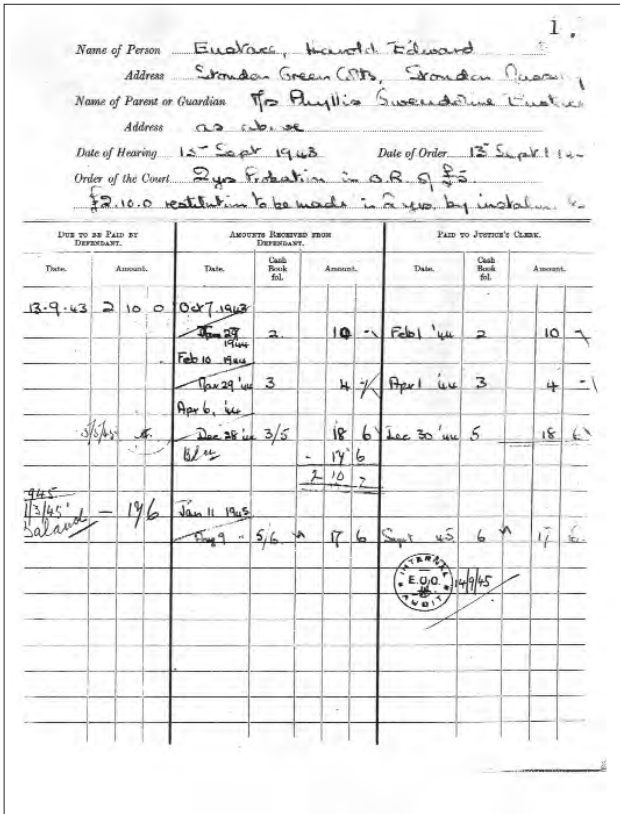 1.
Name of Person Eustace, Harold Edward
Address Stondon Green Cotts, Stondon Massey
Name of Parent or Guardian Mrs Phyllis Gwendoline Eustace
Address as above
Date of Hearing 13th Sept 1943 Date of Order 13th Sept
Order of the Court 2 yrs Probation in O.R. of £5.
£2.10.0 restitution to be made in 2 yrs. by instalm
DUE TO BE PAID BY DEFENDANT. AMOUNTS RECEIVED FROM DEFENDANT. PAID TO JUSTICE'S CLERK.
Date. Amount. Date. Cash Book fol. Amount. Date. Cash Book fol. Amount.
13-9-43 2 10 0 Oct 7. 1943
Jan 29 1944 2. 10 - Feb 1 '44 2 10 -
Feb 10 1944
Mar 29 '44 3 4 - Apr 1 '44 3 4 -
Apr 6. '44
Dec 28 '44 3/5 18 6 Dec 30 '44 5 18 6
- 17 6
2 10 -
1945
1/3/45 Balance - 17 6 Jan 11 1945
Aug 9 " 5/6 17 6 Sept 45 6 17 6
INTERNAL AUDIT
14/9/45